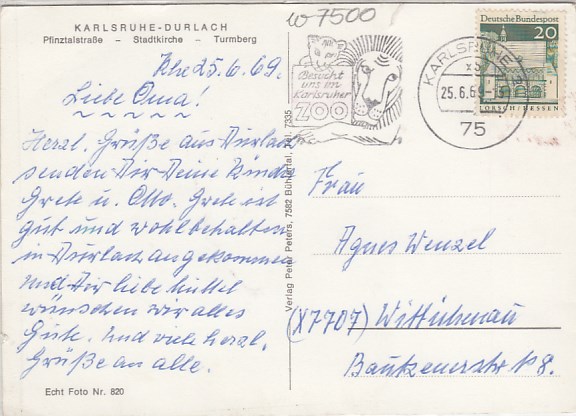 KARLSRUHE-DURLACH
Pfinztalstraße – Stadtkirche – Turmberg
W 7500
Khe 25.6.69.
Liebe Oma!
Herzl. Grüße aus Durlach
senden Dir Deine Kinder
Grete u. Otto. Grete ist
gut und wohlbehalten
in Durlach angekommen
und Dir liebe
wünschen wir alles
Gute. Und viele herzl.
Grüße an alle.
Echt Foto Nr. 820
Verlag Peter Peters, 7582 Bühlertal, Tel. 7335
Besucht
uns im
Karlsruher
ZOO
KARLSRUHE 2
25.6.69
75
Deutsche Bundespost
20
LORSCH/HESSEN
Frau
Agnes Wenzel
(X7707) Wittichenau
Bautzenerstr 18.